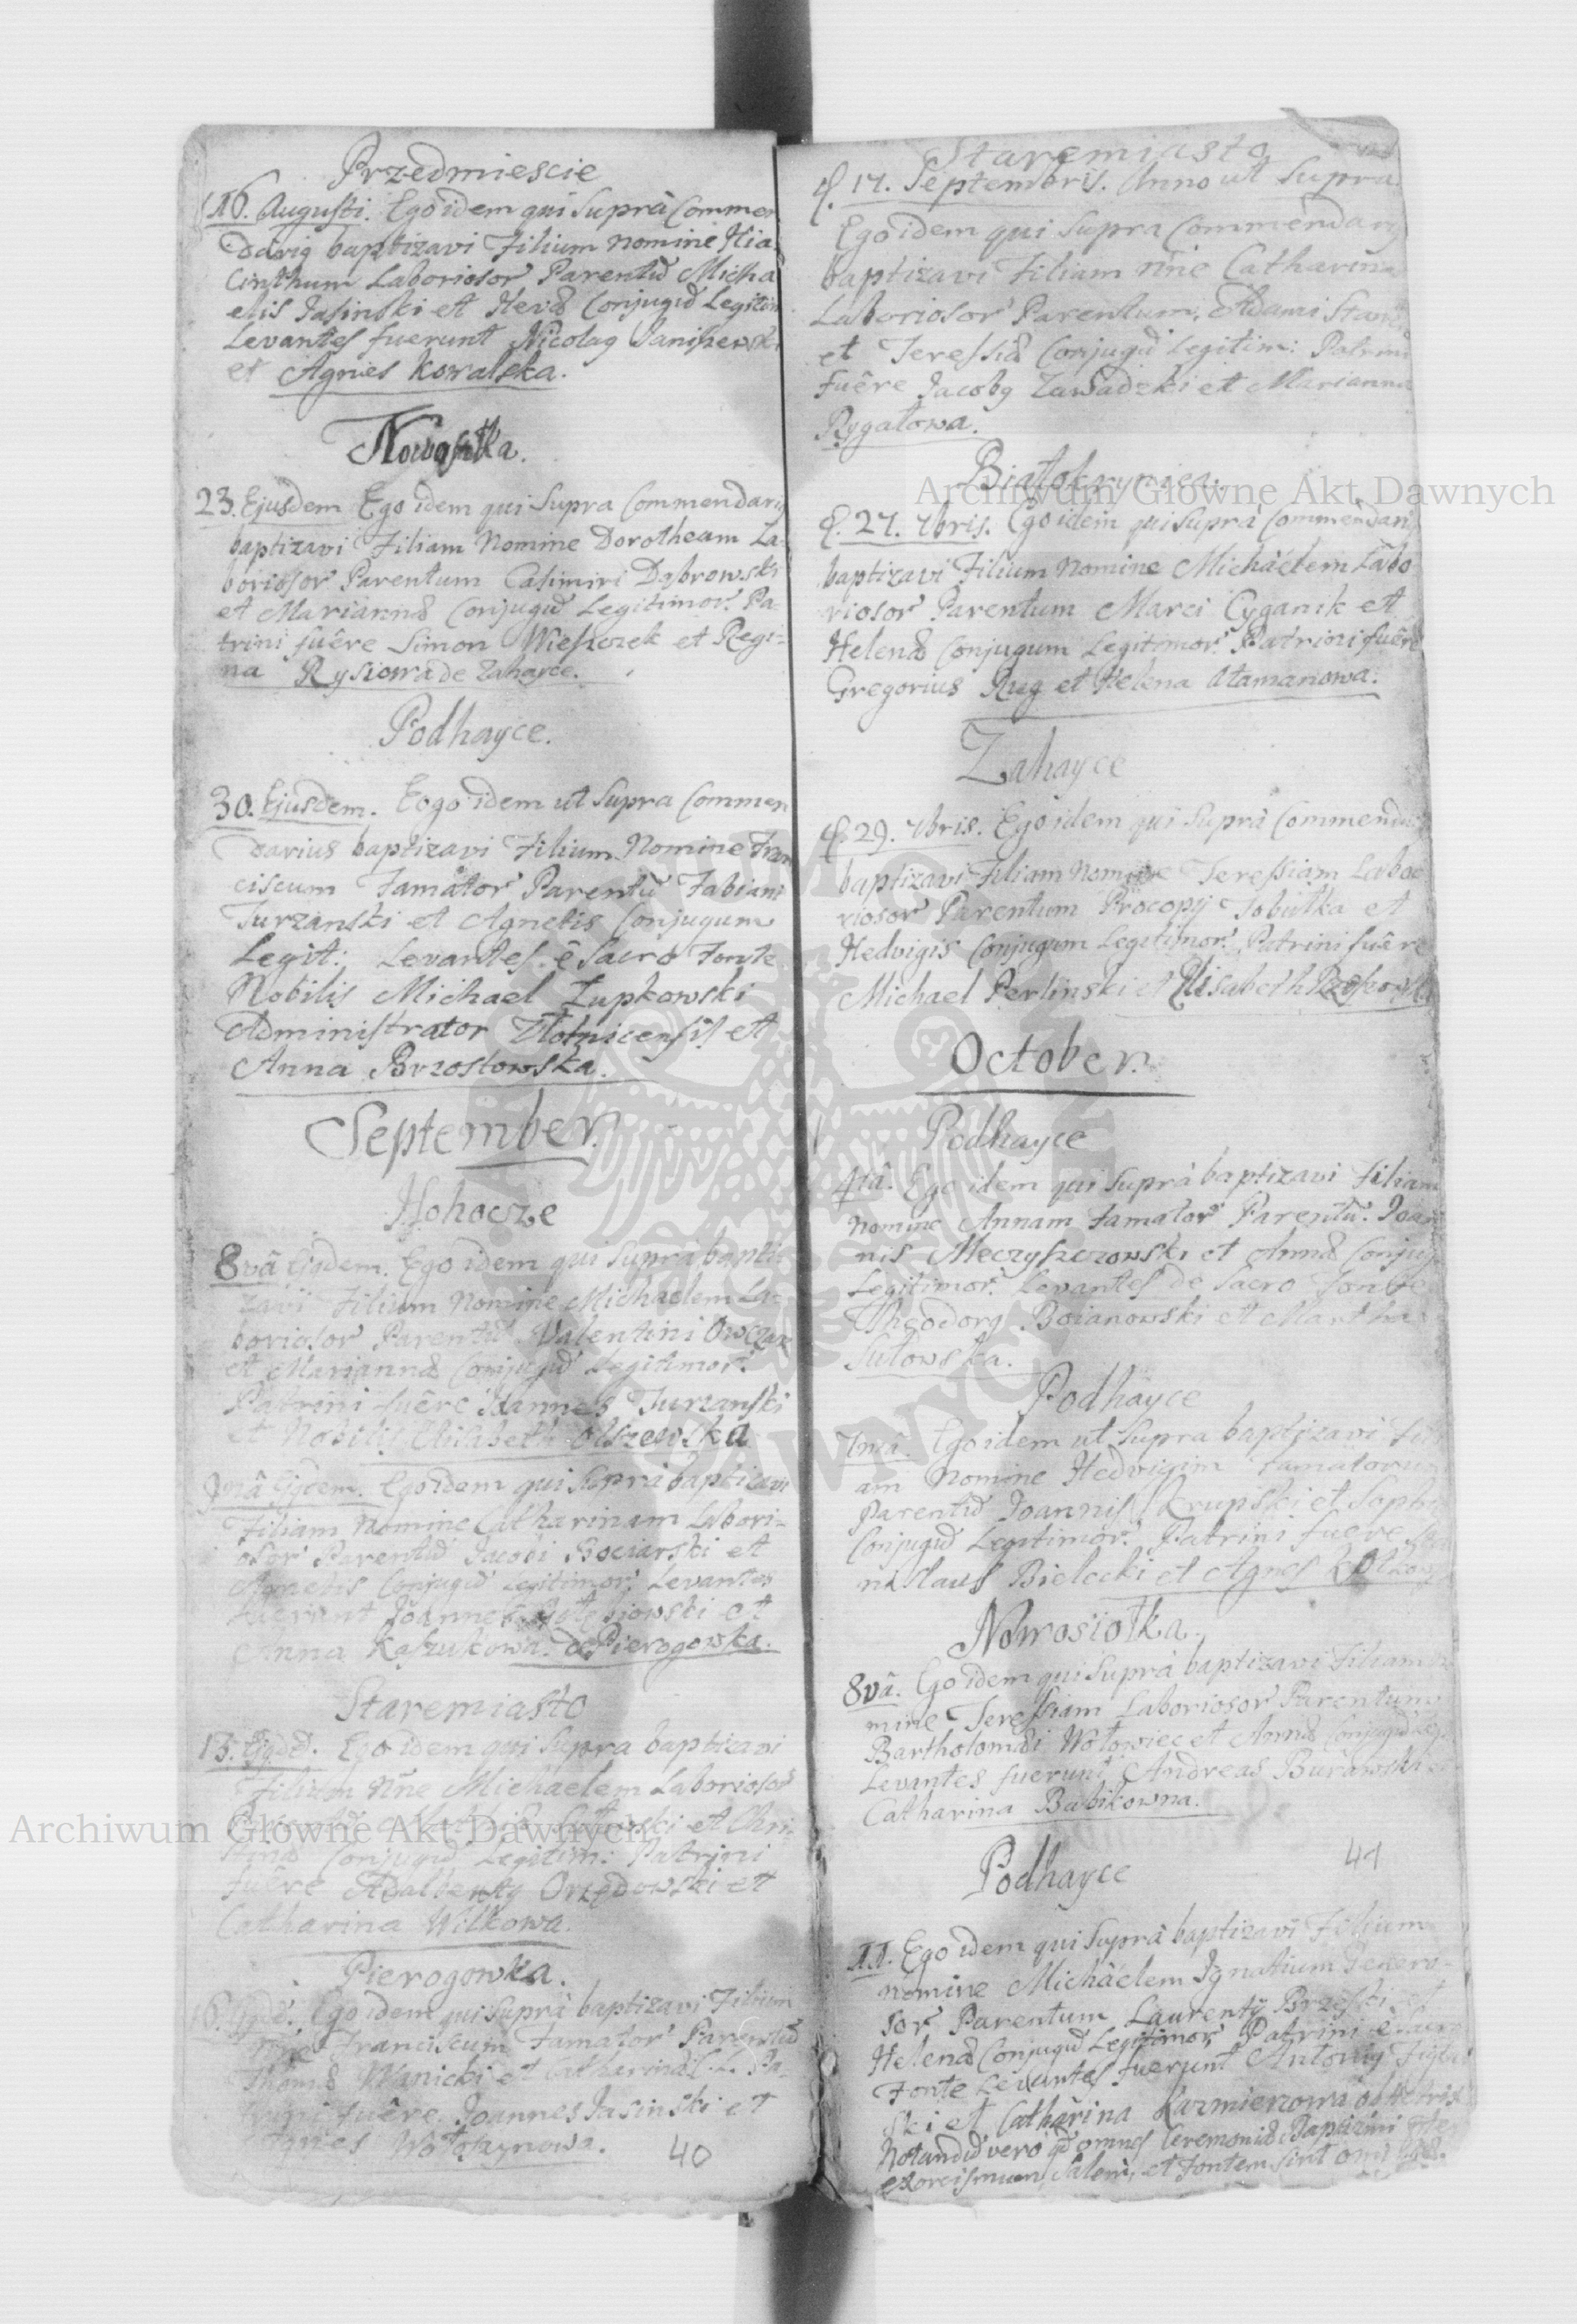 Przedmiescie
16. Augusti. Ego idem qui Suprà Commen
darig baptizavi Filium nomine Hia
cinthum Laboriosor Parentū Micha
elis Jasinski et Hevæ Conjugū Legitim
Levantes fuerunt Nicolag Janiszewski
et Agnes Kowalska.
Nowosiołka.
23. Ejusdem Ego idem qui Supra Commendarig
baptizavi Filiam Nomine Dorotheam La-
boriosor Parentum Casimiri Dąbrowski
et Mariannæ Conjugū Legitimor. Pa-
trini fuêre Simon Wieszczek et Regi-
na Rysiowa de Zahayce.
Podhayce.
30. Ejusdem. Eogo idem ut Supra Commen
darius baptizavi Filium Nomine Fran
ciscum Famator Parentū Fabiani
Turzanski et Agnetis Conjugum
Legit: Levantes ê Sacro Fonte
Nobilis Michael Łupkowski
Administrator Złotnicensis et
Anna Brzostowska.
September.
Hohocze
8vâ Ejgdem. Ego idem qui Suprà bapti
zavi Filium Nomine Michaelem La-
boriosor Parentū Valentini Owczar
et Mariannæ Conjugū Legitimor.
Patrini fuêre Joannes Turzanski
et Nobilis Elisabeth Olszewska
9nâ Ejgdem. Ego idem qui Suprà baptizavi
Filiam Nomine Catharinam Labori-
osor Parentū Jacobi Bociarski et
Agnetis Conjugū Legitimor. Levantes
fuerunt Joannes et
Anna Kaszukowa de Pierogowka.
Staremiasto
13. Ejgdē. Ego idem qui Supra baptizavi
Filium Nne Michaelem Laborioso
Parentū et Chri-
stinæ Conjugū Legitim: Patrini
fuêre Adalbertg Orzędowski et
Catharina Wilkowa.
Pierogowka.
16. Ejgdē. Ego idem qui Suprà baptizavi Filium
Nne Franciscum Famator Parentū
Thomæ Wanicki et Catharinæ C. L. Pa-
trini fuêre Joannes Jasinski et
Agnes Wołoszynowa.
40
Staremiasto
d. 17. Septembris. Anno ut Supra
Ego idem qui Supra Commendarg
baptizavi Filiam nne Catharina
Laboriosor Parentum, Adami
et Teressiæ Conjugū Legitim: Patrini
fuêre Jacobg Zawadzki et Marianna
Rygałowa.
Białokrynica.
d. 27. 7bris. Ego idem qui Suprà Commendari
baptizavi Filium Nomine Michaelem Labo
riosor Parentum Marci Cyganik et
Helenæ Conjugum Legitimor. Patrini fuêre
Gregorius Rug et Helena Atamanowa.
Zahayce
d. 29. 7bris. Ego idem qui Suprà Commenda
baptizavi Filiam Nomine Teressiam Labo
riosor Parentum Procopij Tobutka et
Hedvigis Conjugum Legitimor. Patrini fuêre
Michael Perlinski et Elisabeth
October.
Podhayce
4tâ. Ego idem qui Suprà baptizavi Filiam
Nomine Annam Famator Parentū. Joan
nis Meczyszczowski et Annæ Conjug
Legitimor. Levantes de Sacro Fonte
Theodorg Boianowski et Martha
Sutowska.
Podhayce
7mâ. Ego idem ut Supra baptizavi Fili
am Nomine Hedvigim Famatorum
Parentū Joannis Krupski et Sophi
Conjugū Legitimor. Patrini fuere
nislaus Bielecki et Agnes
Nowosiołka.
8vâ. Ego idem qui Suprà baptizavi Filiam No
mine Teressiam Laboriosor Parentum
Bartholomæi Wołowiec et Annæ Conjugū Leg
Levantes fuerunt Andreas Burawski et
Catharina Babikowna.
Podhayce
41
11. Ego idem qui Suprà baptizavi Filium
nomine Michaelem Ignatium Genero-
sor Parentum Laurentij Brzeski et
Helenæ Conjugū Legitimor. Patrini e sacro
Fonte Levantes fuerunt Antonig
ski et Catharina Kazmierzowa obstetrix
Notandū vero qd omnes Ceremoniæ Baptizmi
exorcismum, Salem, et Fontem sint
Archiwum Główne Akt Dawnych
Archiwum Główne Akt Dawnych